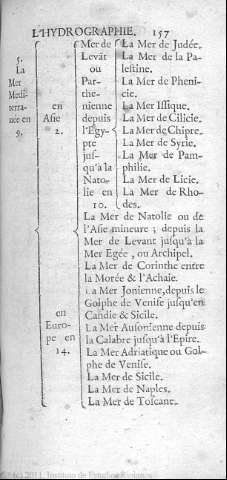 L'HYDROGRAPHIE. 157
5.
La
Mer
Medi-
terra-
née en
9.
en
Asie
2.
Mer de
Levãt
ou
Par-
the-
nienne
depuis
l'Egy-
pte
jus-
qu'à la
Nato-
lie en
10.
La Mer de Judée.
La Mer de la Pa-
lestine.
La Mer de Pheni-
cie.
La Mer Issique.
La Mer de Cilicie.
La Mer de Chipre.
La Mer de Syrie.
La Mer de Pam-
philie.
La Mer de Licie.
La Mer de Rho-
des.
en
Euro-
pe en
14.
La Mer de Natolie ou de
l'Asie mineure ; depuis la
Mer de Levant jusqu'à la
Mer Egée, ou Archipel.
La Mer de Corinthe entre
la Morée & l'Achaïe.
La Mer Jonienne, depuis le
Golphe de Venise jusqu'en
Candie & Sicile.
La Mer Ausonienne depuis
la Calabre jusqu'à l'Epire.
La Mer Adriatique ou Gol-
phe de Venise.
La Mer de Sicile.
La Mer de Naples.
La Mer de Toscane.
(c) 2011, Instituto de Estudios Riojanos